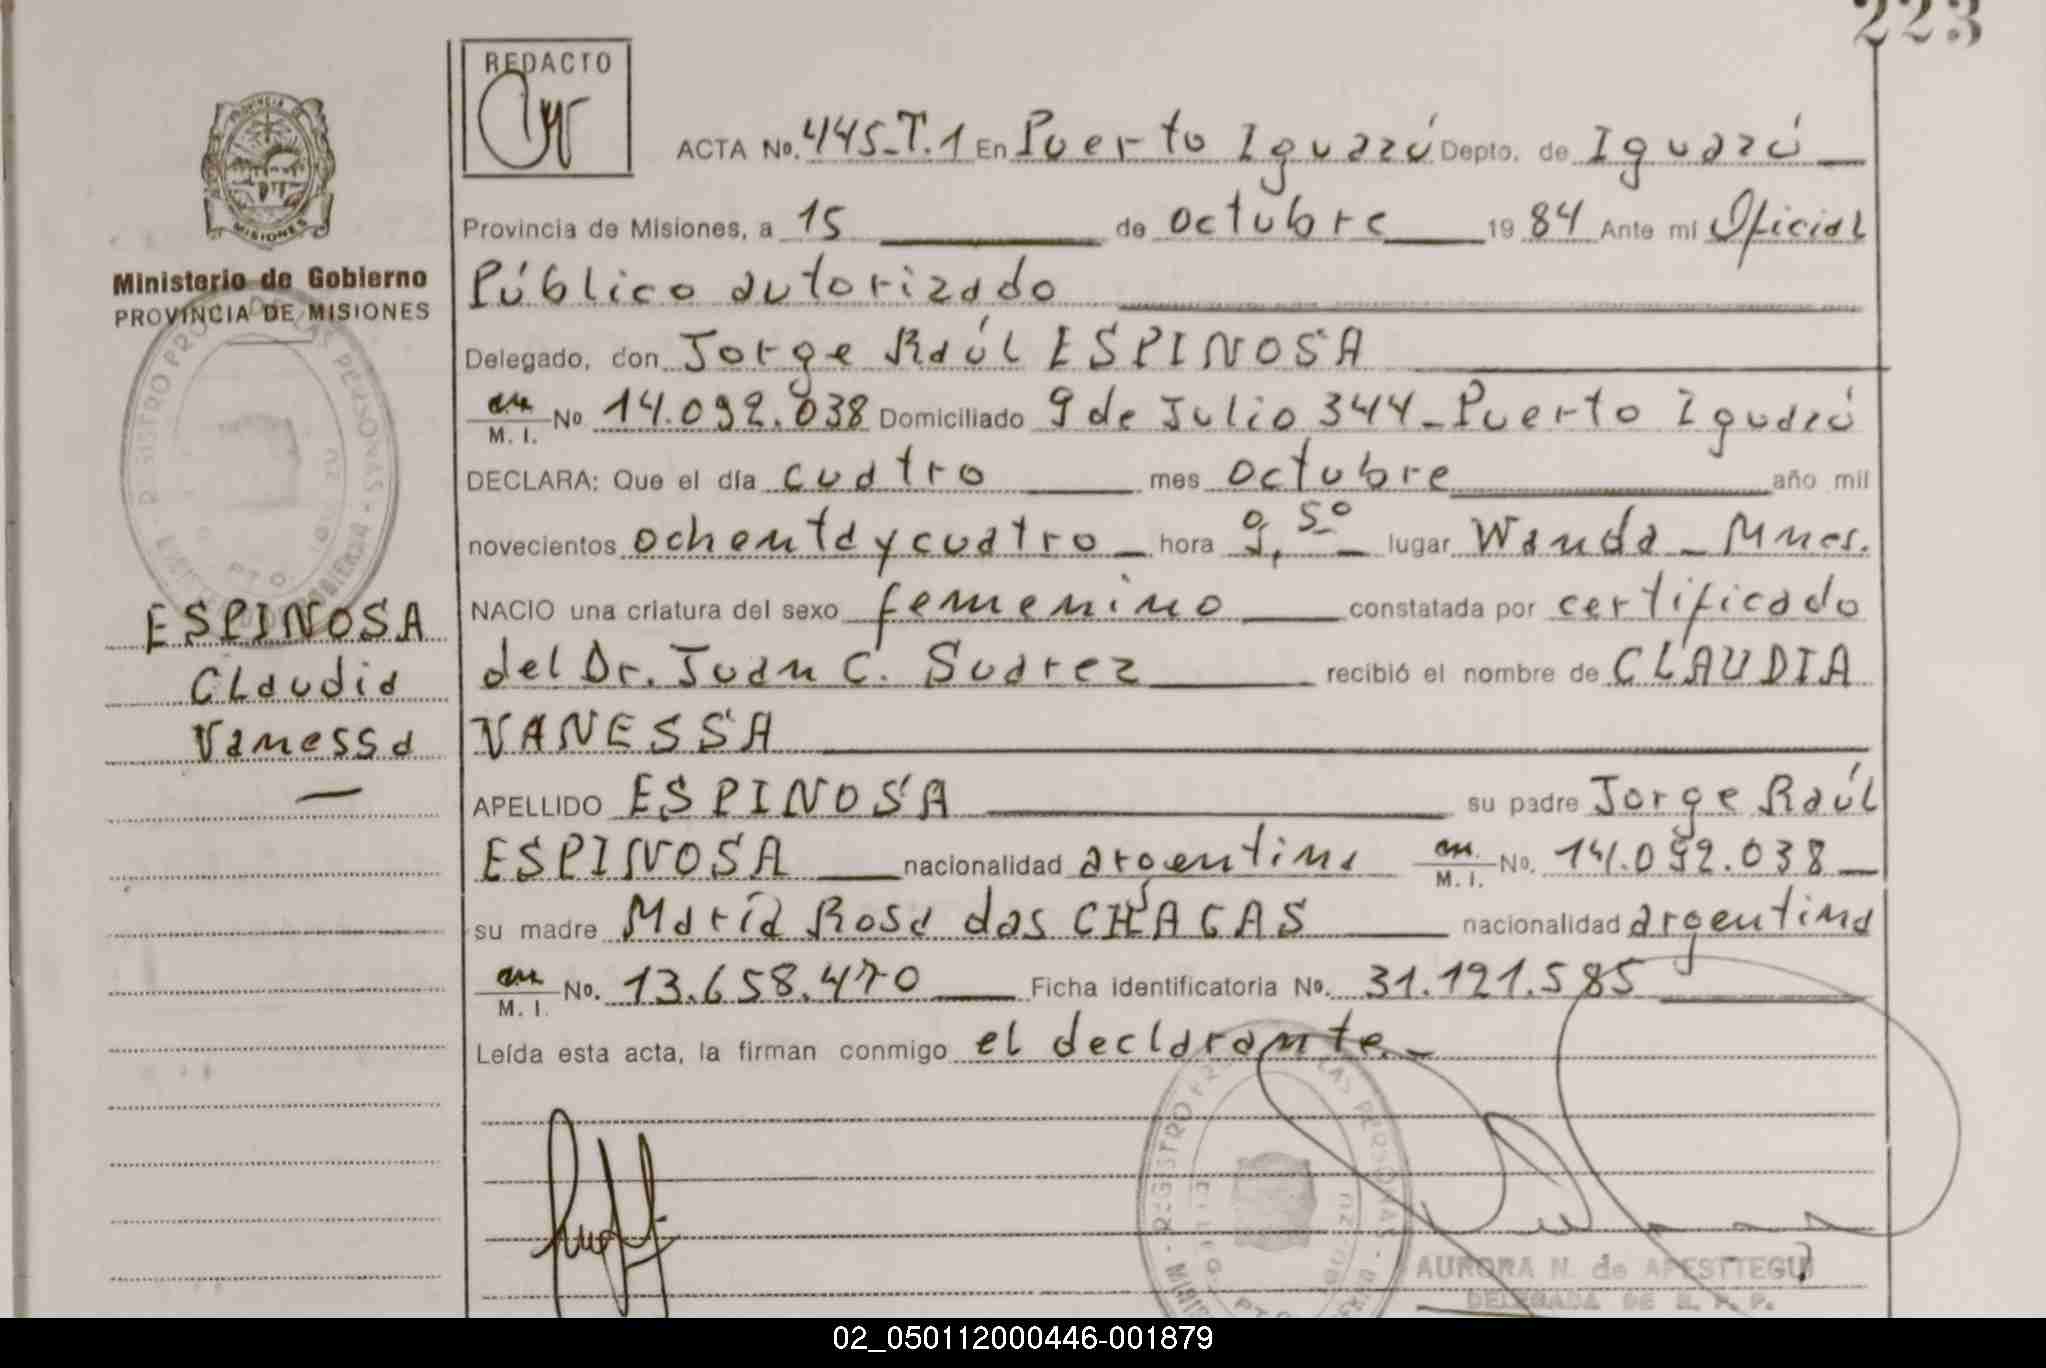 223
REDACTO
PROVINCIA DE
MISIONES
ACTA No. 445-T.1 En Puerto Iguazú Depto. de Iguazú
Provincia de Misiones, a 15 de octubre 1984 Ante mí Oficial
Ministerio de Gobierno
PROVINCIA DE MISIONES
Público autorizado
Delegado, don Jorge Raúl ESPINOSA
M. I. No 14.092.038 Domiciliado 9 de Julio 344-Puerto Iguazú
DECLARA: Que el día cuatro mes octubre año mil
novecientos ochenta y cuatro hora 9,50 lugar Wanda - Mnes.
NACIO una criatura del sexo femenino constatada por certificado
ESPINOSA
Claudia
Vanessa
del Dr. Juan C. Suarez recibió el nombre de CLAUDIA
VANESSA
APELLIDO ESPINOSA su padre Jorge Raúl
ESPINOSA nacionalidad argentina M. I. No. 14.092.038
su madre María Rosa das CHAGAS nacionalidad argentina
M. I. No. 13.658.470 Ficha identificatoria No. 31.121.585
Leída esta acta, la firman conmigo el declarante.-
AURORA N. de APESTTEGUI
DELEGADA DE R. P. P.
02_050112000446-001879